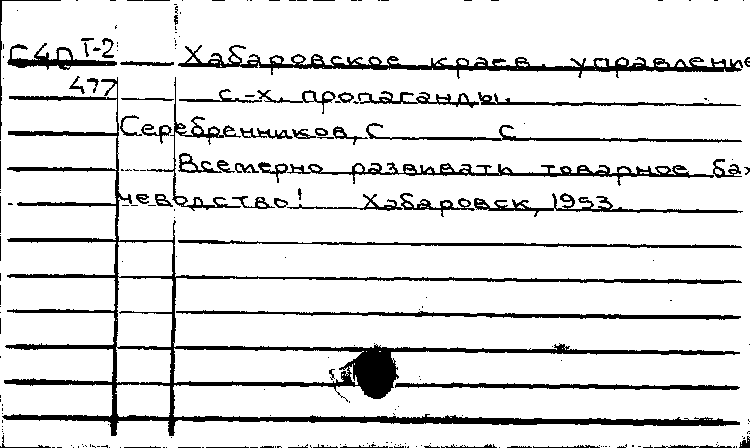 С4D Т-2 Хабаровское краев. управление
477 с.-х. пропаганды.
Серебренников, С С
Всемерно развивать товарное бах
чеводство! Хабаровск, 1953.